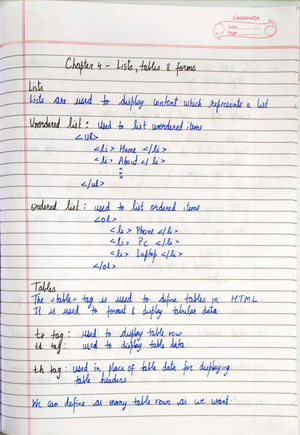 classmate
Date
Page
Chapter 4 - Lists, tables & forms
Lists
Lists are used to display content which represents a list
Unordered list : used to list unordered items
<UL>
<li> Home </li>
<li> About </li>
</ul>
ordered list : used to list ordered items
<ol>
<li> Phone </li>
<li> PC </li>
<li> Laptop </li>
</ol>
Tables
The <table> tag is used to define tables in HTML.
It is used to format & display tabular data
tr tag : used to display table row
td tag : used to display table data
th tag : used in place of table data for displaying
table headers
We can define as many table rows as we want.